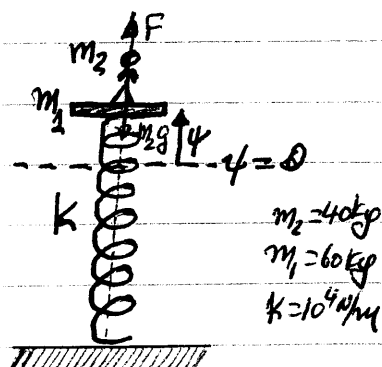 F
m₂
m₁
m₂g
ψ
ψ=0
K
m₂=40kg
m₁=60kg
K=10⁴N/m